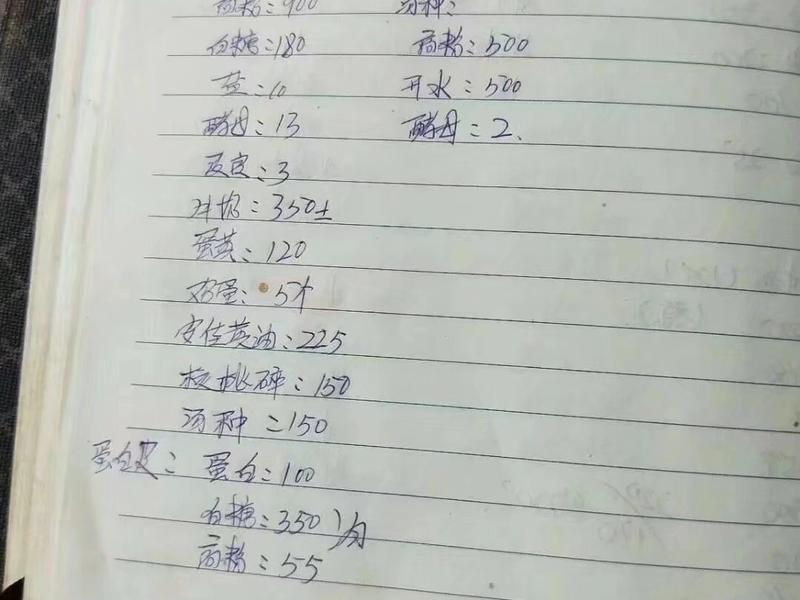 高粉:900 汤种:
白糖:180 高粉:500
盐:10 开水:500
酵母:13 酵母:2、
改良:3
牛奶:350±
蛋黄:120
鸡蛋:5个
安佳黄油:225
核桃碎:150
汤种:150
蛋白皮: 蛋白:100
白糖:350
高粉:55